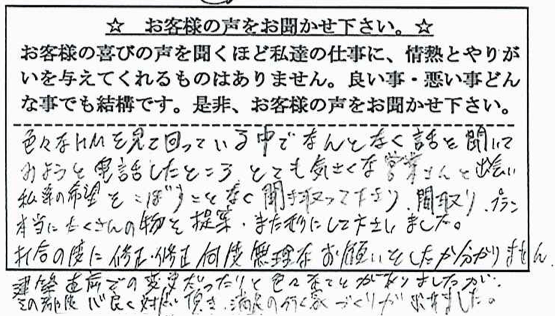 ☆ お客様の声をお聞かせ下さい。☆
お客様の喜びの声を聞くほど私達の仕事に、情熱とやりが
いを与えてくれるものはありません。良い事・悪い事どん
な事でも結構です。是非、お客様の声をお聞かせ下さい。
色々なHMを見て回っている中でなんとなく話を聞いて
みようと電話したところ、とても気さくな営業さんと出会い
私達の希望をこぼすことなく聞き取って下さり、間取り、プラン
本当にたくさんの物を提案、また形にして下さいました。
打合の度に修正・修正何度無理なお願いをしたか分かりません。
建築途中での変更だったりと色々なことがありましたが、
その都度心良く対応頂き、満足の行く家づくりが出来ました。